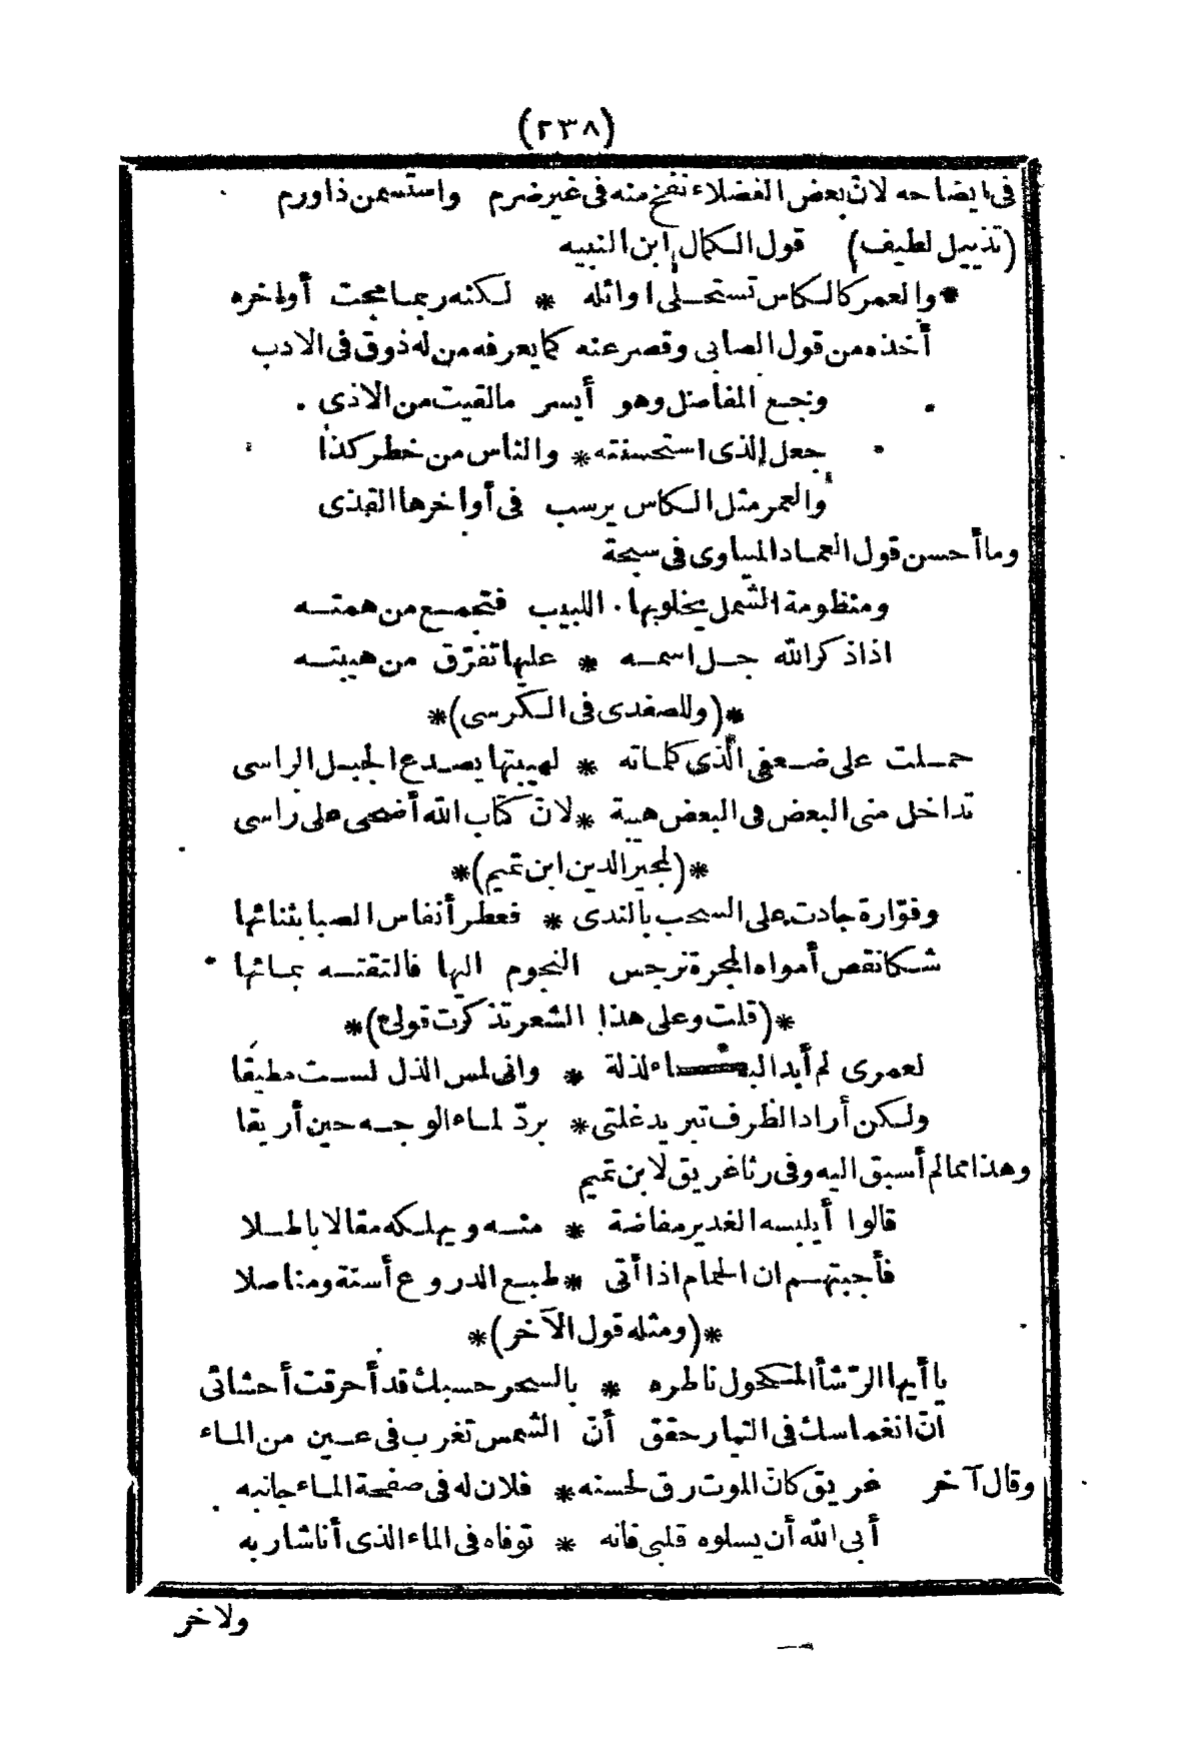 (٢٣٨)
فى ايضاحه لان بعض الفضلاء نفخ منه فى غير ضرم واستسمن ذا ورم
(تذييل لطيف) قول الكمال ابن النبيه
* والعمر كالكاس تستحلى اوائله * لكنه ربما مجت أواخره
أخذه من قول الصابى وقصر عنه كما يعرفه من له ذوق فى الادب
وجع المفاصل وهو أيسر مالقيت من الاذى
جعل الذى استحسنته * والناس من خطر كذا
والعمر مثل الكاس يرسب فى أواخرها القذى
وما أحسن قول العماد المياوى فى سبحة
ومنظومة الشمل يخلوبها اللبيب فتجمع من همته
اذا ذكر الله جل اسمه * عليها تفرّق من هيبته
*(وللصفدى فى الكرسى)*
حملت على ضعفى الّذى كلماته * لهيبتها يصدع الجبل الراسى
تداخل منى البعض فى البعض هيبة * لانّ كتاب الله أضحى على راسى
*(لمجير الدين ابن تميم)*
وفوّارة جادت على السحب بالندى * فعطر أنفاس الصبا بثنائها
شكا نقص أمواه المجرة نرجس النجوم اليها فالتقتسه بمائها
*(قلت وعلى هذا الشعر تذكرت قولى)*
لعمرى لم أبد البشاء لذلة * وانى لمس الذل لست مطيقا
ولكن أراد الظرف تبريد غلتى * بردّ لماء الوجه حين أريقا
وهذا مما لم أسبق اليه وفى رثا غريق لابن تميم
قالوا أيلبسه الغدير مفاضة * منه ويهلكه مقالا باطلا
فأجبتهم ان الحمام اذا أتى * طبع الدروع أسنة ومناصلا
*(ومثله قول الآخر)*
يا أيها الرّشأ المكحول ناظره * بالسحر حسبك قد أحرقت أحشائى
انّ انغماسك فى التيار حقق أنّ الشمس تغرب فى عين من الماء
وقال آخر غريق كانّ الموت رق لحسنه * فلان له فى صفحة الماء جانبه
أبى الله أن يسلوه قلبى فانه * توفاه فى الماء الذى أنا شاربه
ولاخر